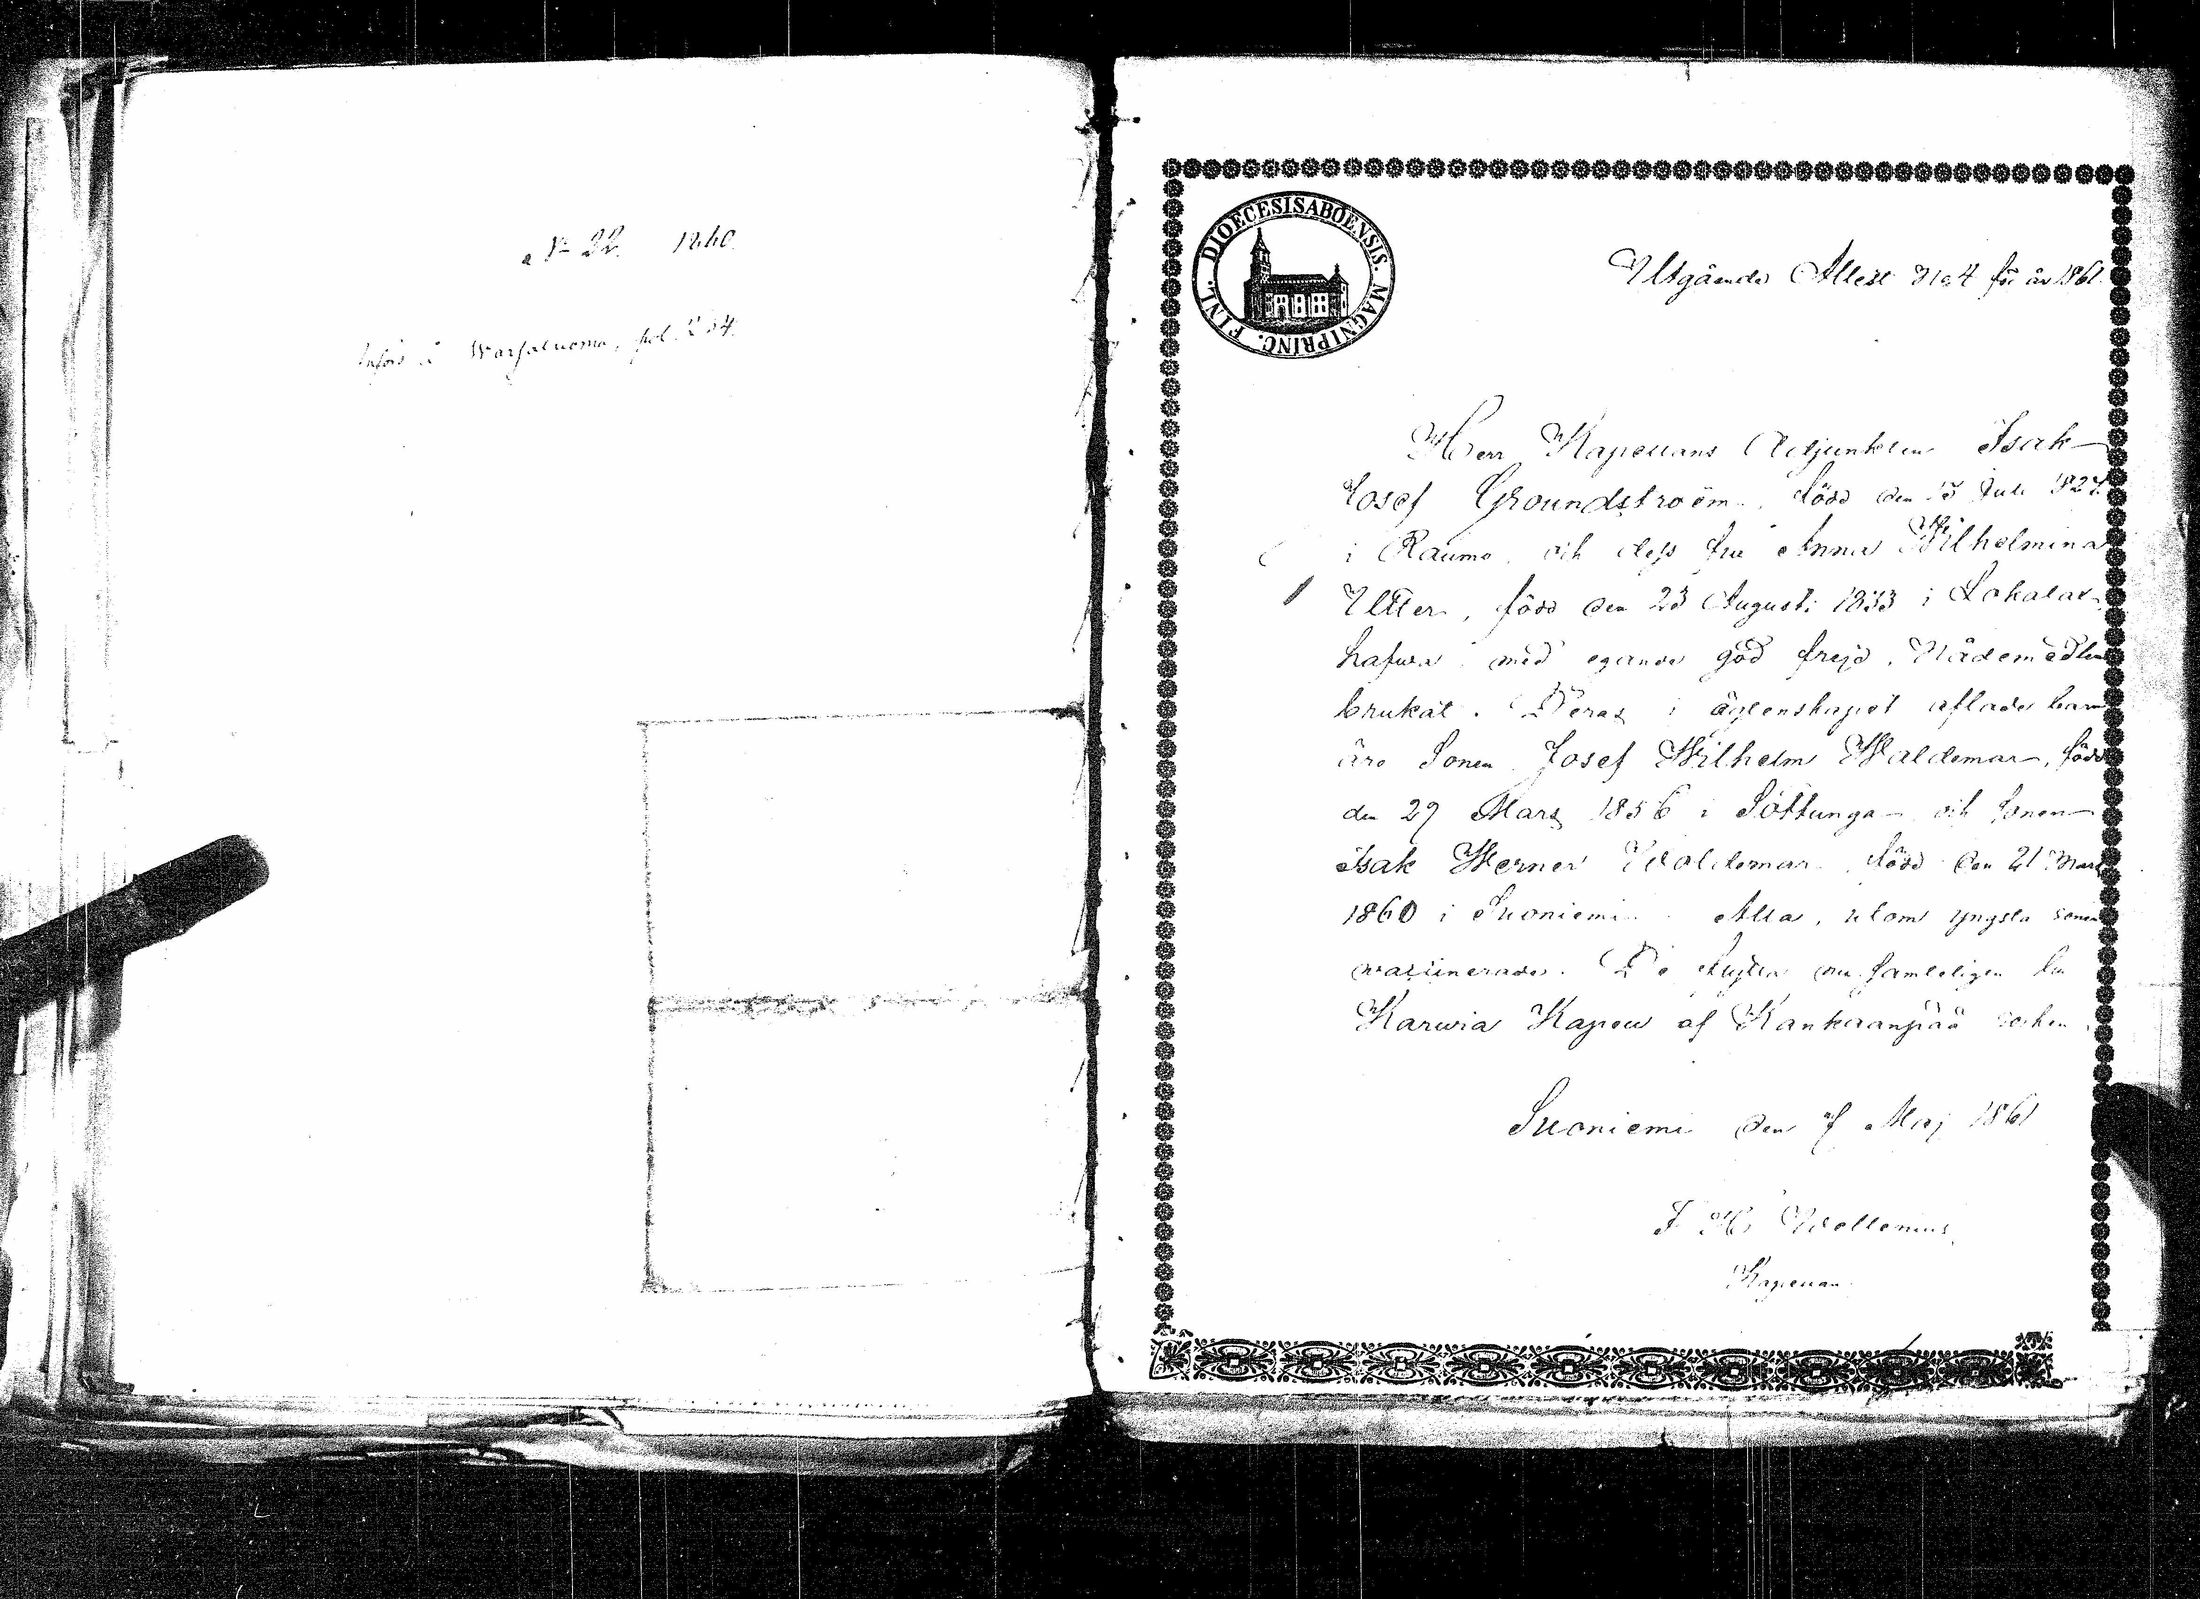 No 22. 1860.
Införd å Warfaluoma, pol. 234.
DIOECESIS ABOENSIS. MAGNI PRINC. FINL.
Utgående Attest No 4 för år 1861.
Herr Kapellans Adjunkten Isak
Josef Groundstroëm, född den 15 Juli 1827
i Raumo, och dess fru Anna Wilhelmina
Utter, född den 23 Augusti 1833 i Lokalax
hafwa med egande god frejd, Nådemedlen
brukat. Deras i ägtenskapet aflade barn
äro Sonen Josef Wilhelm Waldemar, född
den 29 Mars 1856 i Sottunga och Sonen
Isak Werner Woldemar född den 21 Mars
1860 i Suoniemi. Alla, utom yngsta sonen
vaccinerade. De flytta nu samteligen till
Karwia Kapell af Kankaanpää socken.
Suoniemi den 7 Maj 1861
Kapellan.